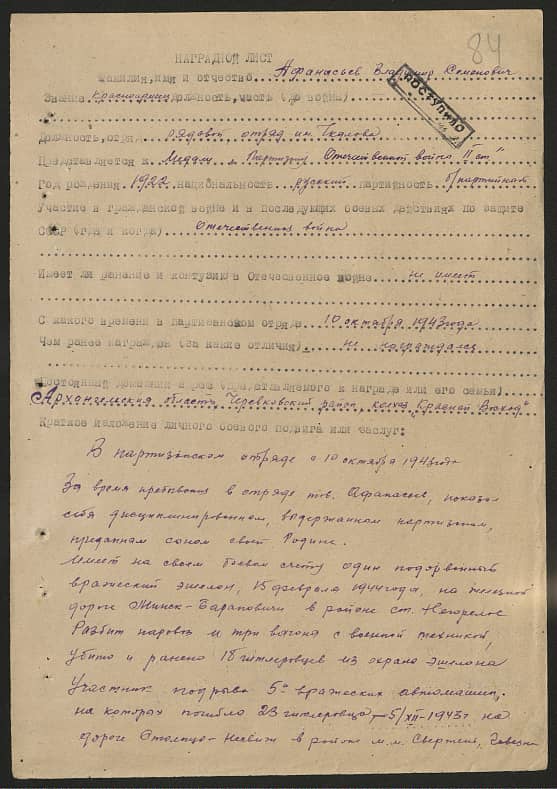 84
НАГРАДНОЙ ЛИСТ
Фамилия, имя и отчество Афанасьев Владимир Семенович
Звание красноарм. должность, часть (до войны)
ПОСТУПИЛО
Должность, отряд рядовой отряд им. Чкалова
Представляется к Медали "Партизан Отечественной войны II ст"
Год рождения 1922 национальность русский партийность б/партийный
Участие в гражданской войне и в последующих боевых действиях по защите
СССР (где и когда) Отечественная война
Имеет ли ранение и контузию в Отечественное войне не имеет
С какого времени в партизанском отряде 10 октября 1943 года
Чем ранее награжден (за какие отличия) не награждался
Постоянный домашний адрес (представляемого к награде или его семьи)
Архангельская область, Черевковский район, колхоз "Красный Восход"
Краткое изложение личного боевого подвига или заслуг:
В партизанском отряде с 10 октября 1943 года
За время пребывания в отряде тов. Афанасьев, показал
себя дисциплинированным, выдержанным партизаном,
преданным сыном своей Родине.
Имеет на своем боевом счету один подорванный
вражеский эшелон, 15 февраля 1944 года, на железной
дороге Минск-Барановичи в районе ст. Негорелое
Разбит паровоз и три вагона с военной техникой,
убито и ранено 18 гитлеровцев из охраны эшелона
Участник подрыва 5и вражеских автомашин,
на которых погибло 23 гитлеровца, 5/XII-1943г на
дороге Столпцы-Несвиж в районе м.м. Свержень,